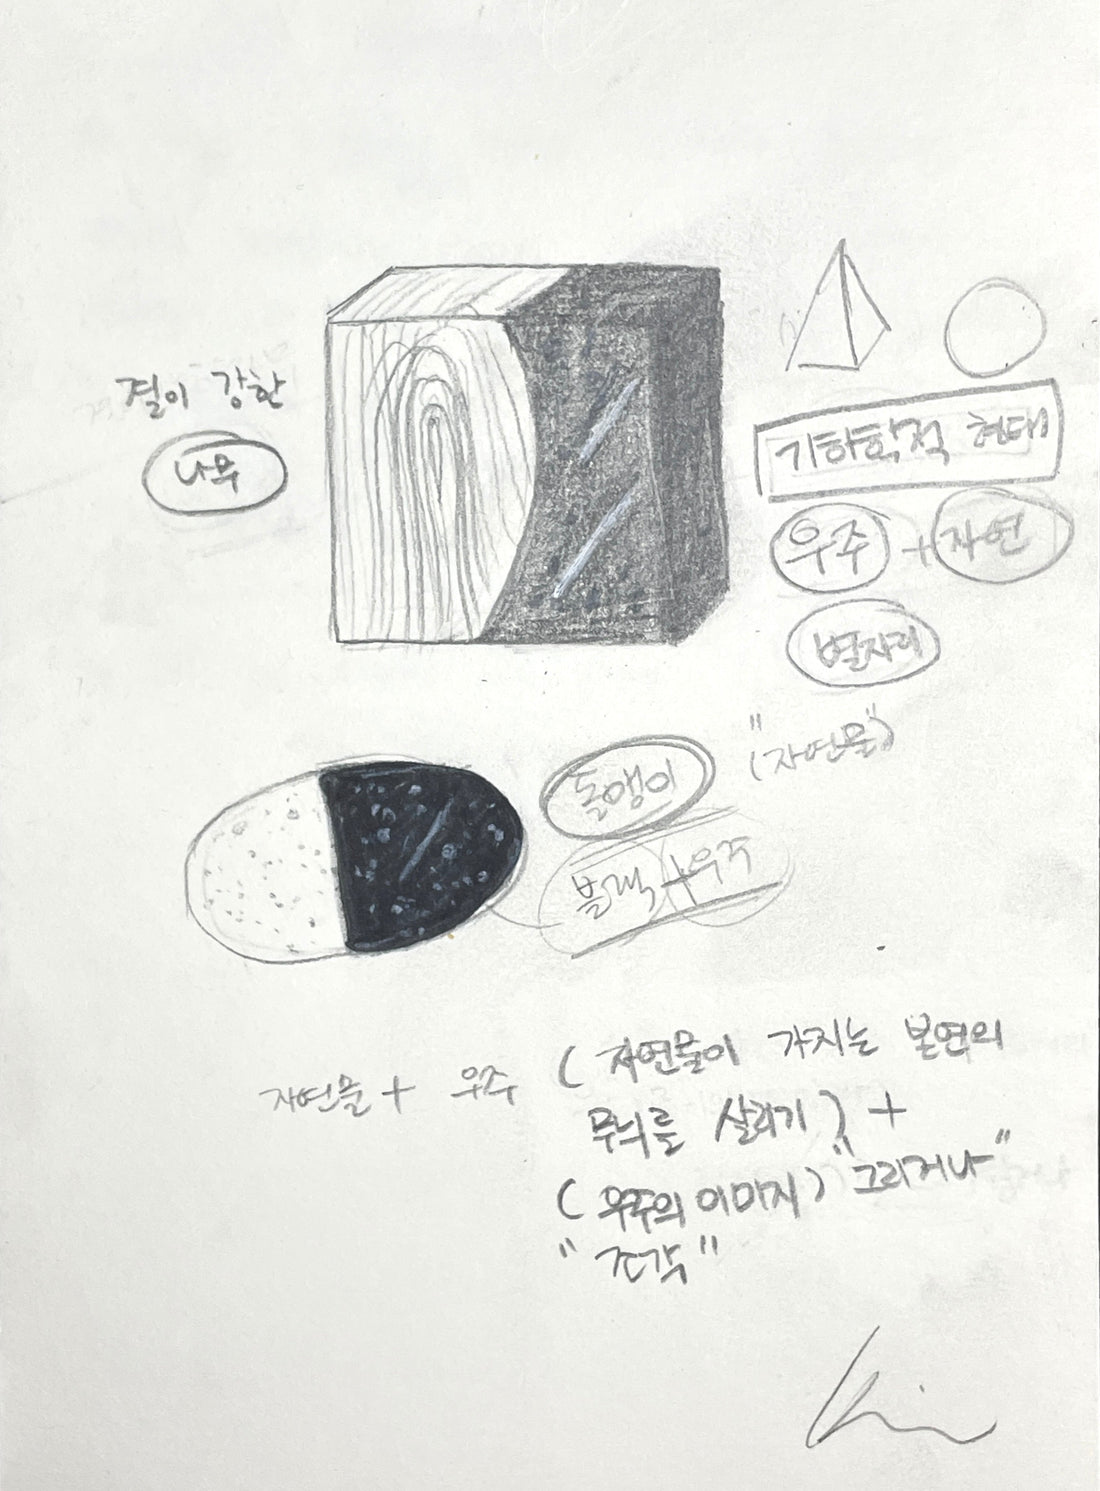 결이 강한
나무
기하학적 형태
우주 + 자연
별자리
"(자연물)"
돌맹이
블랙 + 우주
자연물 + 우주 (자연물이 가지는 본연의
무늬를 살리기) +
(우주의 이미지) "그리거나"
"조각"
Kim